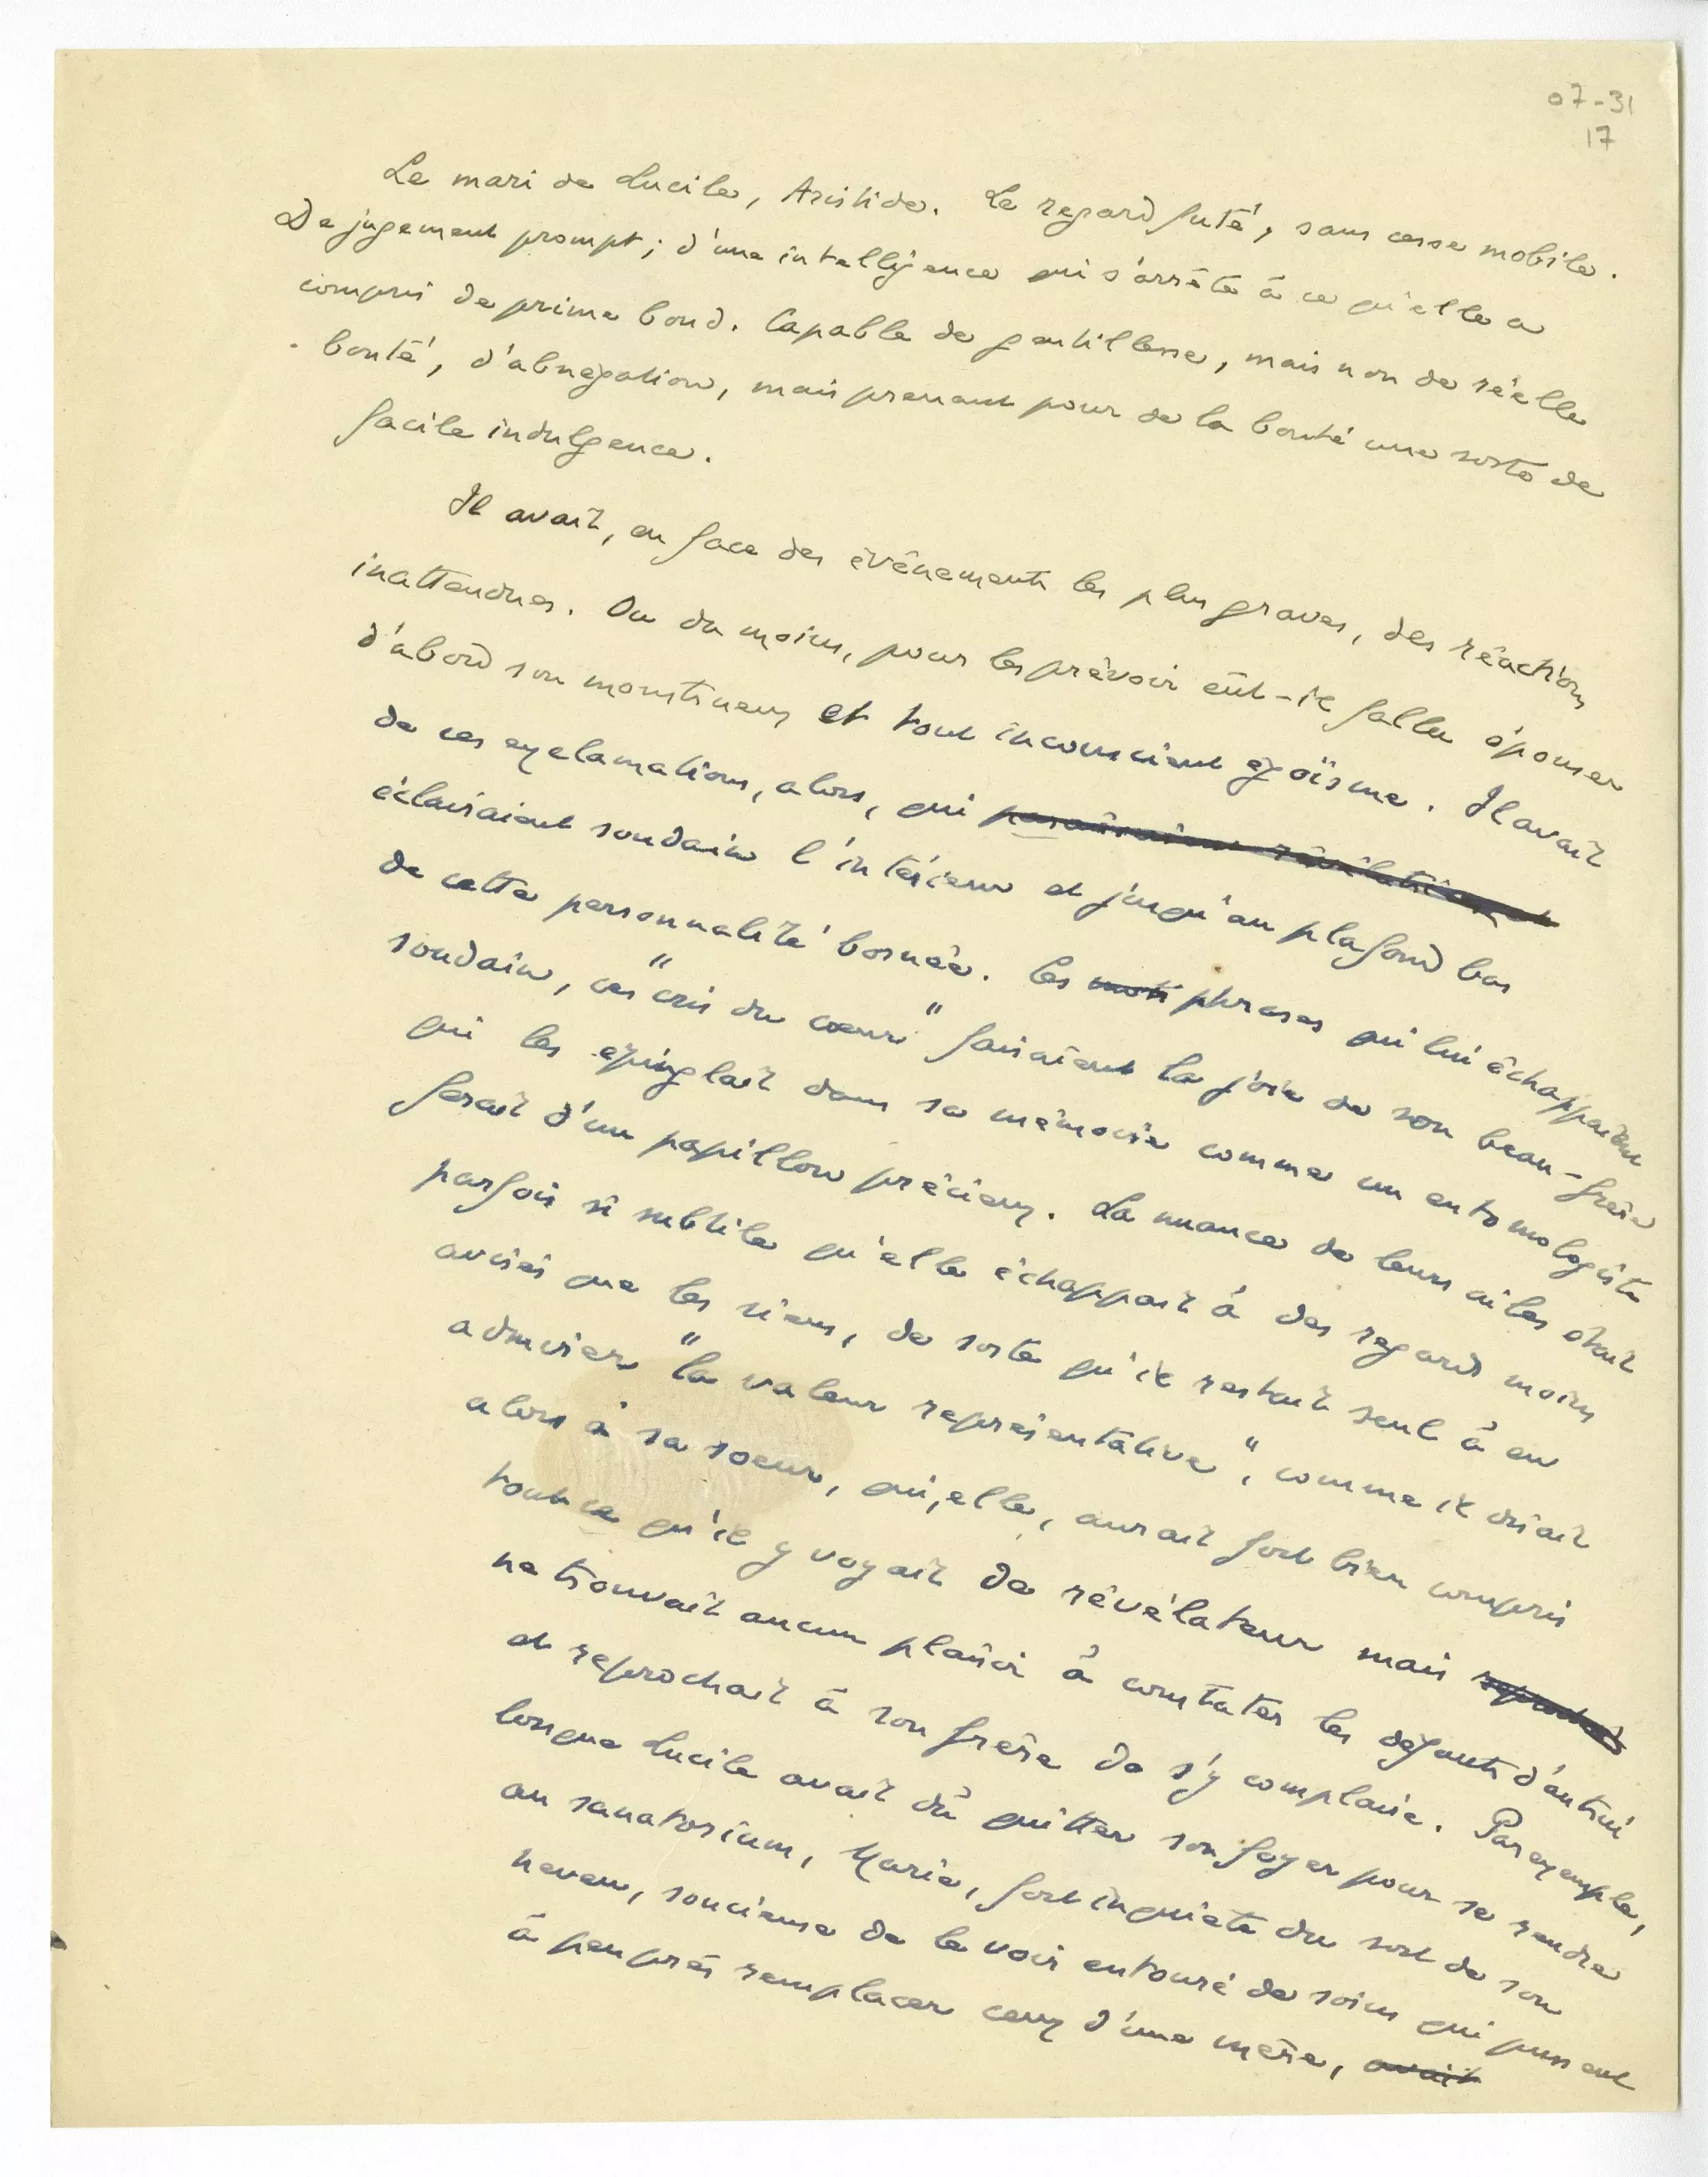 07-31
17
Le mari de Lucile, Aristide. Le regard futé, sans cesse mobile.
De jugement prompt ; d'une intelligence qui s'arrête à ce qu'elle a
compris de prime bond. Capable de gentillesse, mais non de réelle
bonté, d'abnégation, mais prenant pour de la bonté une sorte de
facile indulgence.
Il avait, en face des évênements les plus graves, des réactions
inattendues. Ou du moins, pour les prévoir eût-il fallu épouser
d'abord son monstrueux et tout inconscient egoïsme. Il avait
de ces exclamations, alors, qui
éclairaient soudain l'intérieur et jusqu'au plafond bas
de cette personnalité bornée. Ces mots phrases qui lui échappaient
soudain, ces "cris du cœur" faisaient la joie de son beau-frère
qui les epinglait dans sa mémoire comme un entomologiste
ferait d'un papillon précieux. La nuance de leurs ailes était
parfois si subtile qu'elle échappait à des regards moins
avisés que les siens, de sorte qu'il restait seul à en
admirer "la valeur représentative", comme il disait
alors à sa soeur, qui, elle, aurait fort bien compris
tout ce qu'il y voyait de révélateur mais
ne trouvait aucun plaisir à constater les défauts d'autrui
et reprochait à son frère de s'y complaire. Par exemple,
lorsque Lucile avait dû quitter son foyer pour se rendre
au sanatorium, Marie, fort inquiète du sort de son
neveu, soucieuse de le voir entouré de soins qui pussent
à peu près remplacer ceux d'une mère, avait